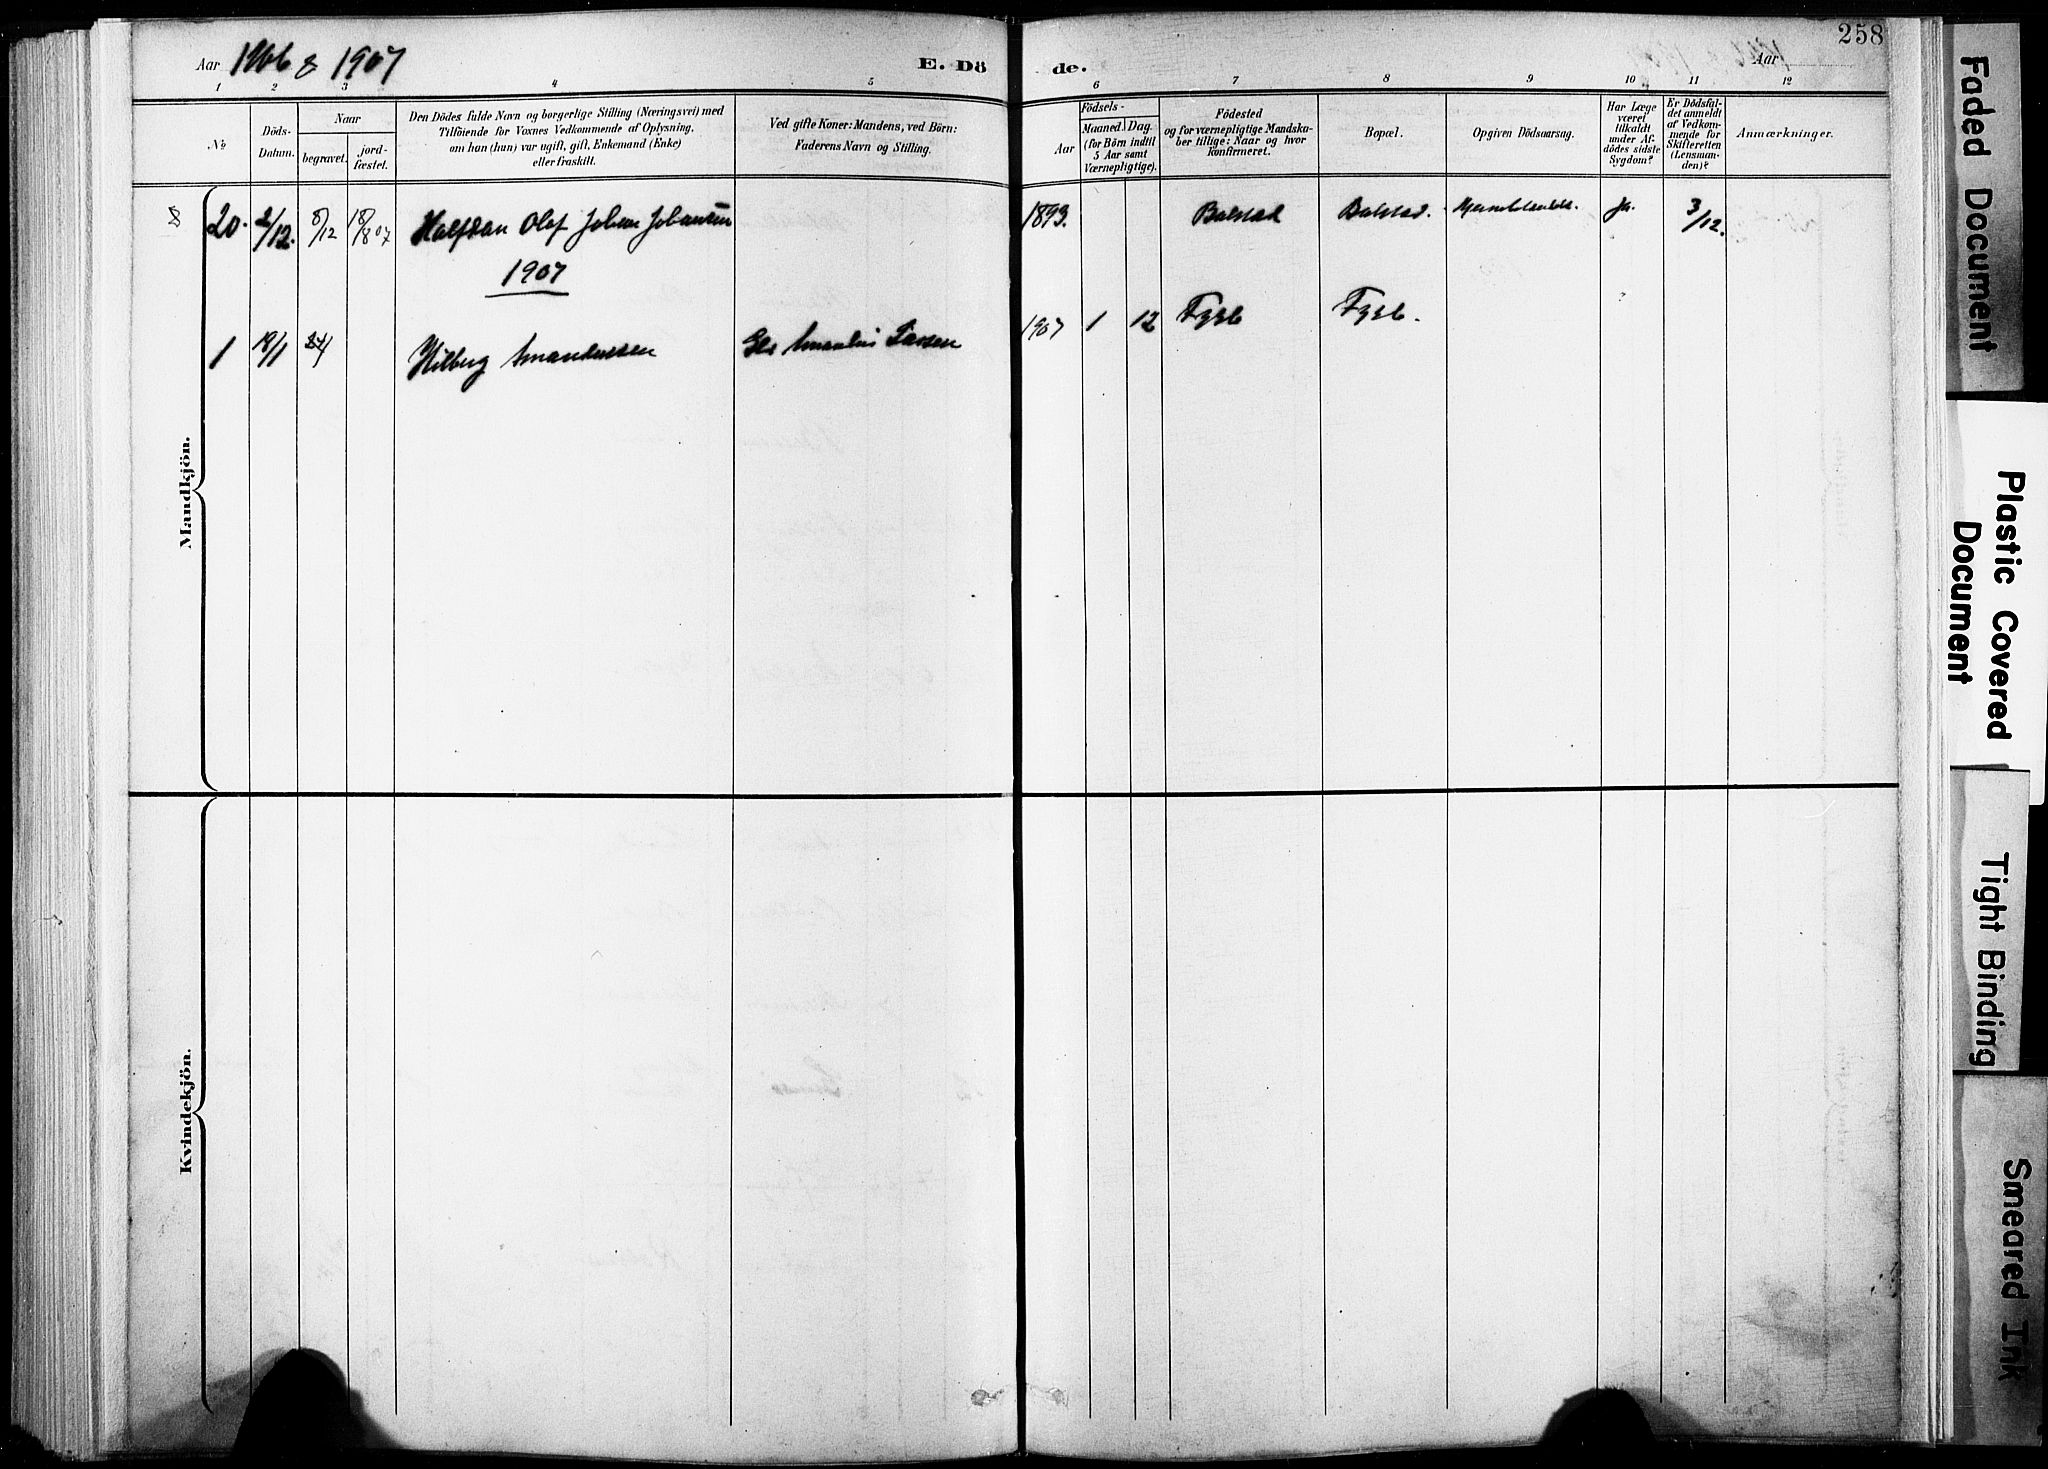 258
Aar 1906 & 1907
E. Dö de.
Aar
1 2 3 4 5 6 7 8 9 10 11 12
No
Döds-Datum.
Naar
begravet.
jord-fæstet.
Den Dödes fulde Navn og borgerlige Stilling (Næringsvei) med
Tilföiende for Voxnes Vedkommende af Oplysning,
om han (hun) var ugift, gift, Enkemand (Enke)
eller fraskilt.
Ved gifte Koner: Mandens, ved Börn:
Faderens Navn og Stilling.
Födsels-
Aar
Maaned. Dag.
(for Börn indtil
5 Aar samt
Værnepligtige).
Födested
og for værnepligtige Mandska-
ber tillige: Naar og hvor
konfirmeret.
Bopæl.
Opgiven Dödsaarsag.
Har Læge
været
tilkaldt
under Af-
dödes sidste
Sygdom?
Er Dödsfal-
det anmeldt
af Vedkom-
mende for
Skifteretten
(Lensman-
den)?
Anmærkninger.
20. 2/12. 8/12 18/8 07 Halfdan Olof Johan Johansen 1893. Balstad Balstad. Ja. 3/12.
1907
1 19/1 Hilberg Amandussen Larsen 1907 1 12 Fygle Fygle.
Mandkjön.
Kvindekjön.
Faded Document
Plastic Covered
Document
Tight Binding
Smeared Ink